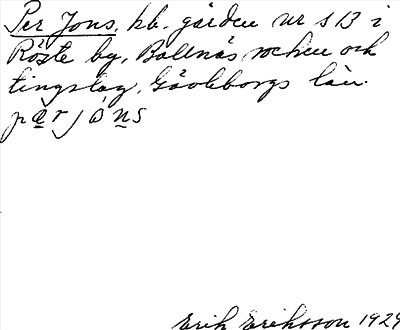 Per Jons, kb. gården nr 5 B i
Röste by, Bollnäs socken och
tingslag, Gävleborgs län.
pær jóns
Erik Eriksson 1929